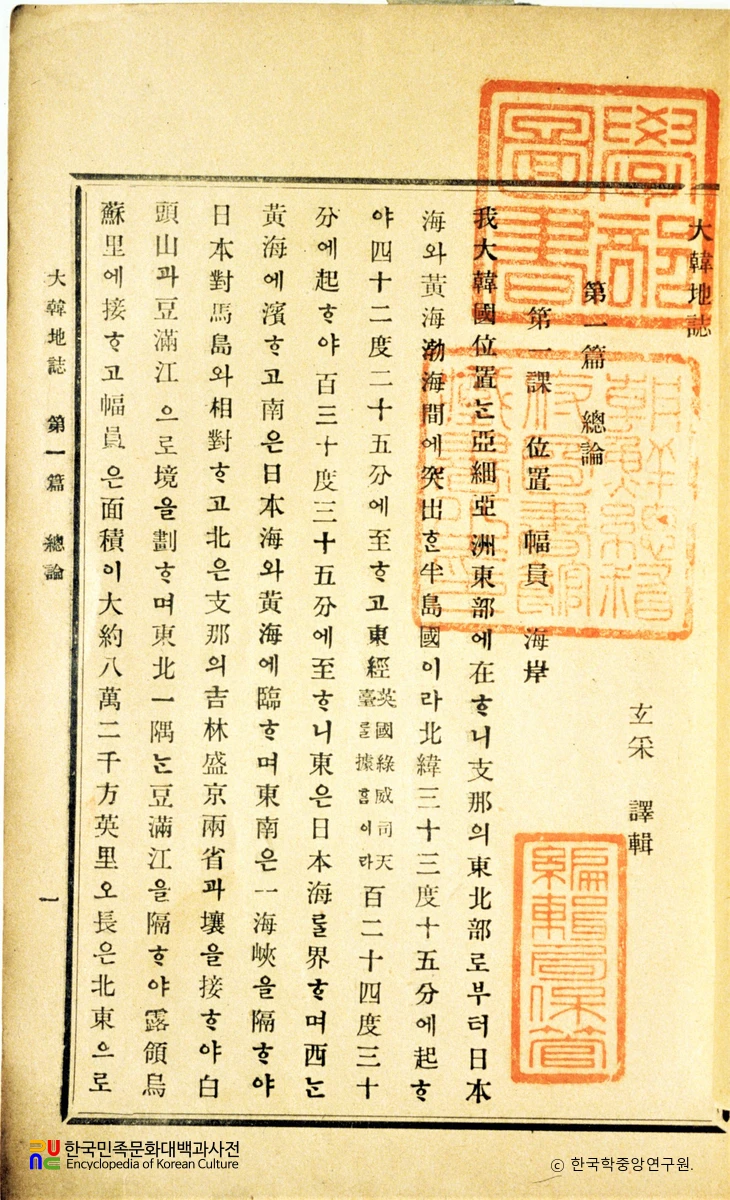 大韓地誌
玄采 譯輯
第一篇 總論
第一課 位置 幅員 海岸
我大韓國位置ᄂᆞᆫ亞細亞洲東部에在ᄒᆞ니支那의東北部로부터日本
海와黃海渤海間에突出ᄒᆞᆫ半島國이라北緯三十三度十五分에起ᄒᆞ
야四十二度二十五分에至ᄒᆞ고東經英國綠威司天臺ᄅᆞᆯ據홈이라百二十四度三十
分에起ᄒᆞ야百三十度三十五分에至ᄒᆞ니東은日本海ᄅᆞᆯ界ᄒᆞ며西ᄂᆞᆫ
黃海에濱ᄒᆞ고南은日本海와黃海에臨ᄒᆞ며東南은一海峽을隔ᄒᆞ야
日本對馬島와相對ᄒᆞ고北은支那의吉林盛京兩省과壤을接ᄒᆞ야白
頭山과豆滿江으로境을劃ᄒᆞ며東北一隅ᄂᆞᆫ豆滿江을隔ᄒᆞ야露領烏
蘇里에接ᄒᆞ고幅員은面積이大約八萬二千方英里오長은北東으로
大韓地誌 第一篇 總論
一
學部圖書
編輯局保管
한국민족문화대백과사전
Encyclopedia of Korean Culture
© 한국학중앙연구원.